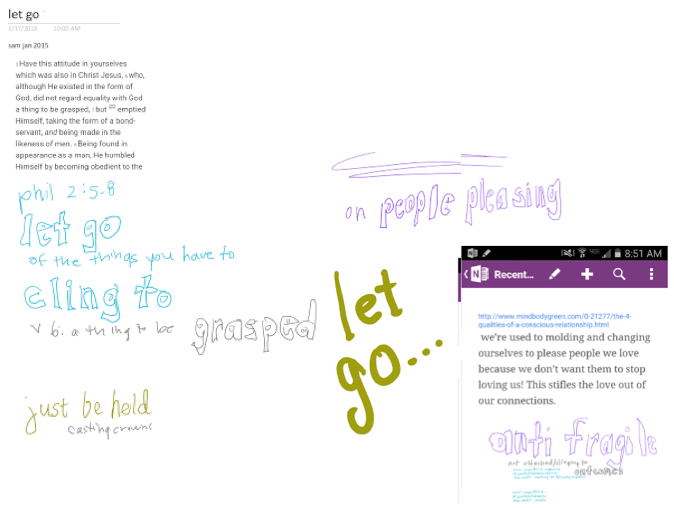 let go
1/17/2015 10:02 AM
sam jan 2015
5 Have this attitude in yourselves
which was also in Christ Jesus, 6 who,
although He existed in the form of
God, did not regard equality with God
a thing to be grasped, 7 but emptied
Himself, taking the form of a bond-
servant, and being made in the
likeness of men. 8 Being found in
appearance as a man, He humbled
Himself by becoming obedient to the
phil 2:5-8
let go
of the things you have to
cling to
v 6: a thing to be grasped
just be held
casting crowns
on people pleasing
let
go...
8:51 AM
Recent...
http://www.mindbodygreen.com/0-21277/the-4-
qualities-of-a-conscious-relationship.html
we're used to molding and changing
ourselves to please people we love
because we don't want them to stop
loving us! This stifles the love out of
our connections.
anti fragile
not attached/clinging to
outcomes